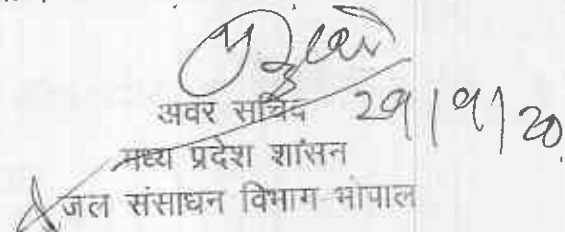 अवर सचिव 29/9/20
मध्य प्रदेश शासन
जल संसाधन विभाग भोपाल